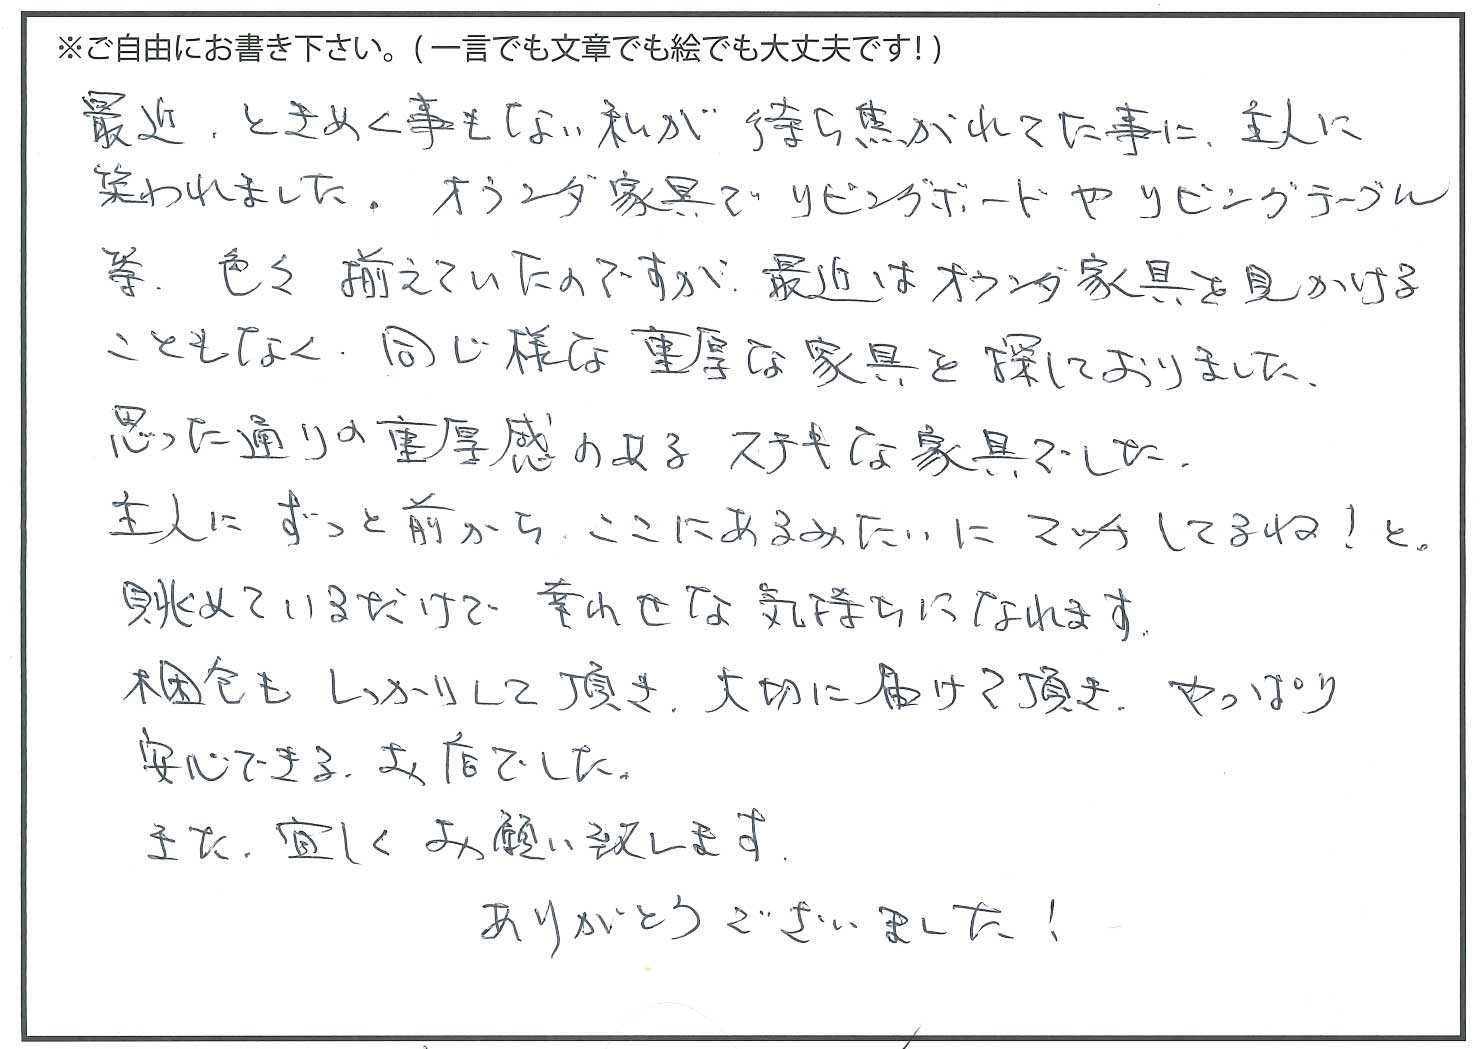 ※ご自由にお書き下さい。(一言でも文章でも絵でも大丈夫です!)
最近、ときめく事もない私が 待ち焦がれてた事に、主人に
笑われました。 オランダ家具で リビングボード や リビングテーブル
等、色々 揃えていたのですが、最近は オランダ家具を見かける
こともなく、同じ様な 重厚な家具を 探しておりました、
思った通りの重厚感のある ステキな家具でした、
主人に ずっと前から、ここにあるみたいに マッチしてるね!と。
眺めているだけで 幸わせな 気持ちになれます、
梱包も しっかりして頂き、大切に届けて頂き、やっぱり
安心できる、お店でした。
また、宜しく お願い致します、
ありがとうございました!